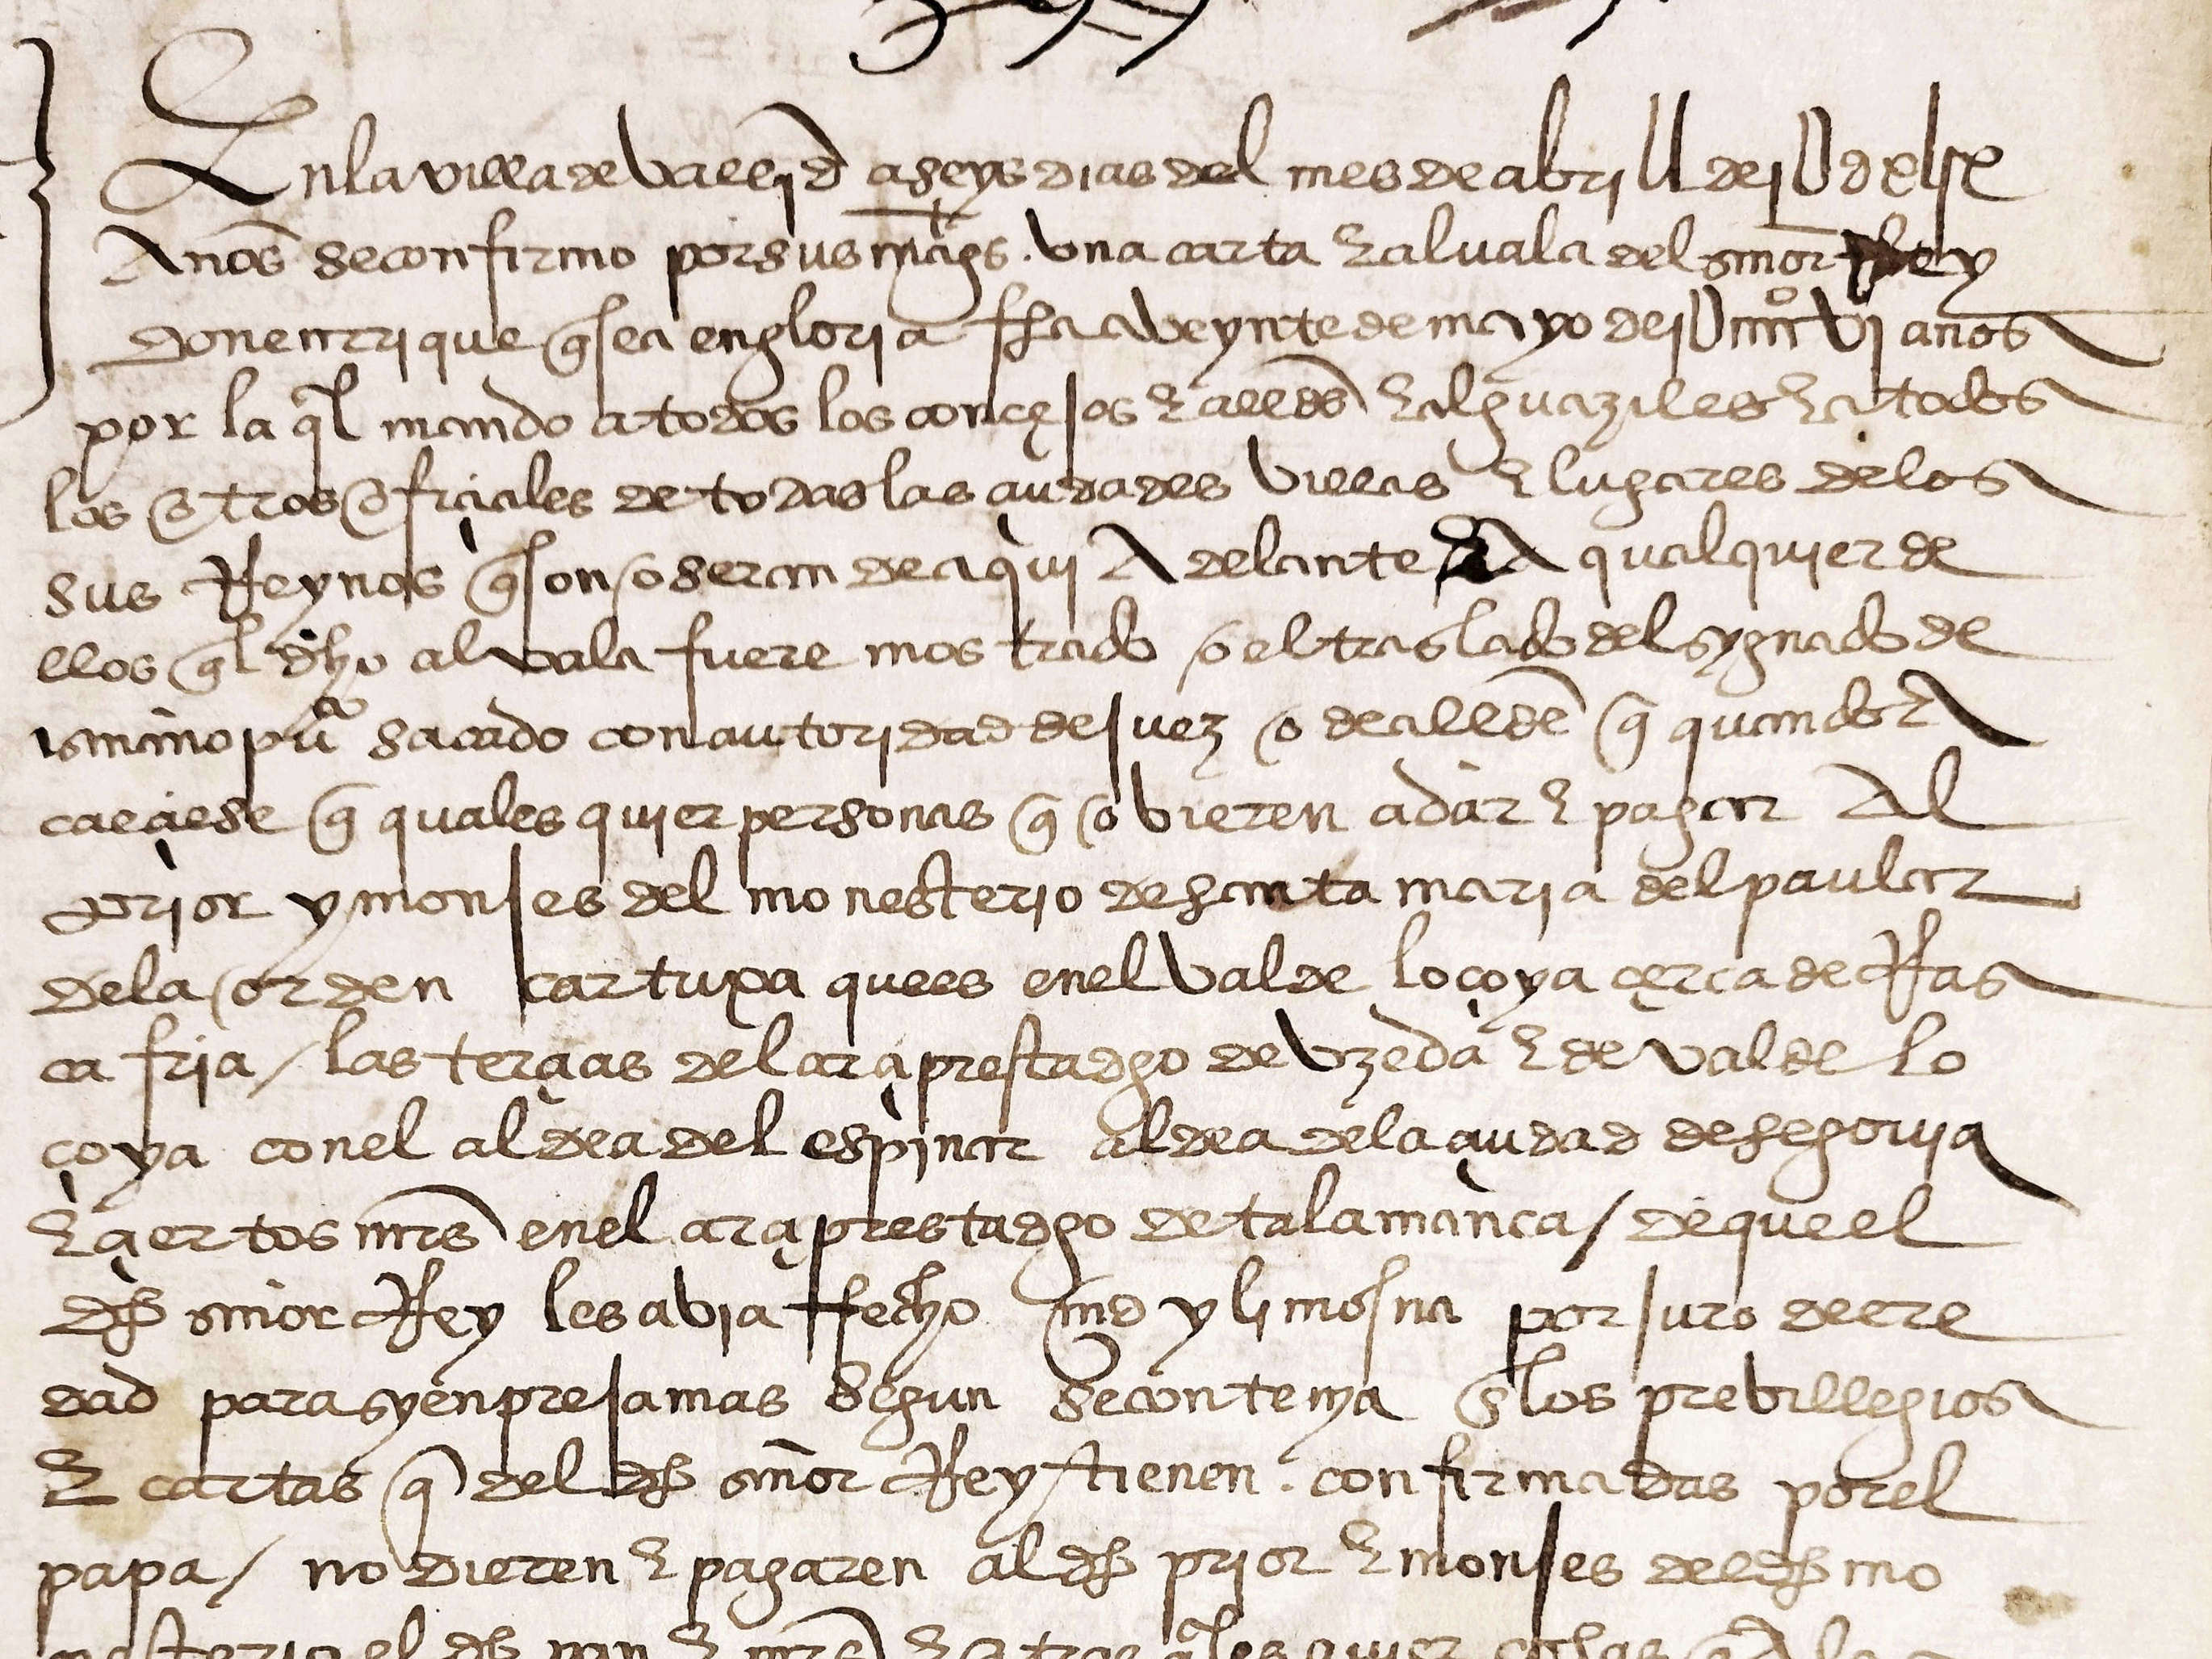 En la villa de vallid a seys dias del mes de abrill de
Años se confirmo por sus mags. vna carta E alvala del señor Rey
don enrrique q sea en gloria ffha a veynte de mayo de jU iiiiº vj años
por la ql mando a todos los conçejos E allds E alguaziles E a todos
los otros ofiçiales de todas las çiudades villas E lugares de los
sus Reynos q son o seran de aqui Adelante E A qualquier de
llos ql dho alvala fuere mostrado o el traslado del sygnado de
puco sacado con autoridad de juez o de allde q quando A
caeçiese q quales quier personas q obieren a dar E pagar Al
prior y monjes del monesterio de santa maria del paular
de la orden cartuxa que es en el val de loçoya çerca de Ras
ca fria / las terçias del arçiprestadgo de vzeda E de val de lo
çoya con el aldea del espinar aldea de la çiudad de segovia
E çiertos mrs en el arçiprestadgo de talamanca / de que el
dho señor Rey les abia ffecho md y limosna por juro de ere
dad para syenpre jamas segun se contenya en los previllegios
E cartas q del dho señor Rey tienen. confirmadas por el
papa / no dieren E pagaren al dho prior E monjes del dho mo
nesterio el dho pan E mrs E otras qles quier cosas q